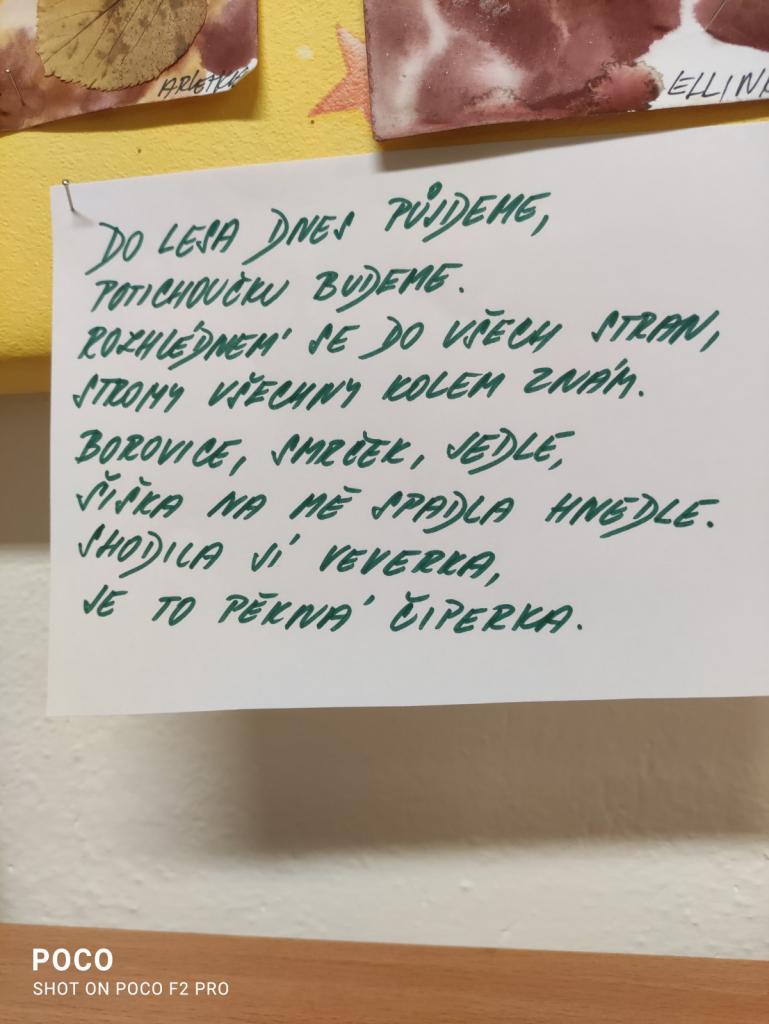 ARLETKA
ELLINK
DO LESA DNES PŮJDEME,
POTICHOUČKU BUDEME.
ROZHLÉDNEM' SE DO VŠECH STRAN,
STROMY VŠECHNY KOLEM ZNÁM.
BOROVICE, SMRČEK, JEDLE,
ŠIŠKA NA MĚ SPADLA HNEDLE.
SHODILA JÍ VEVERKA,
JE TO PĚKNÁ ČIPERKA.
POCO
SHOT ON POCO F2 PRO